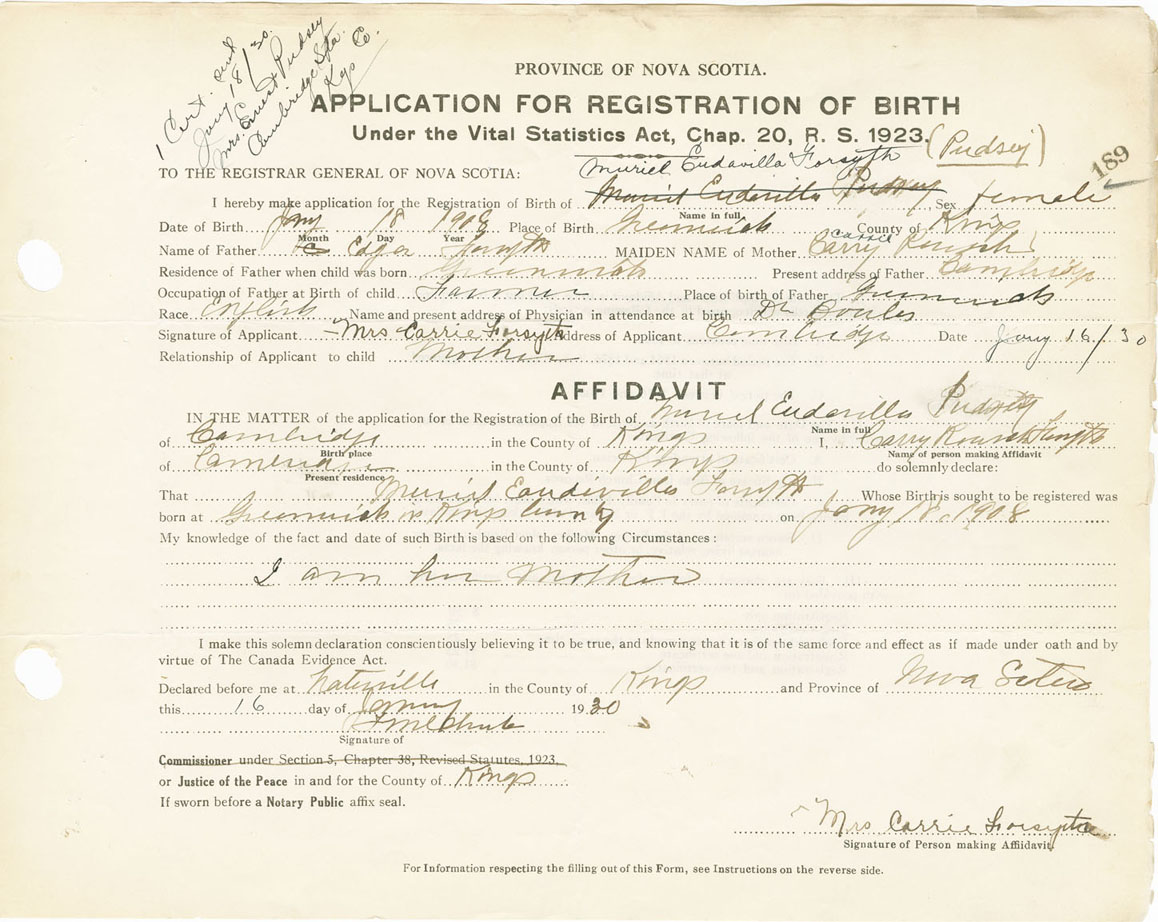 1 Cert. sent
Jany 18/30.
Mrs. Ernest Pudsey
Cambridge Sta.
Kgs Co.
PROVINCE OF NOVA SCOTIA.
APPLICATION FOR REGISTRATION OF BIRTH
Under the Vital Statistics Act, Chap. 20, R. S. 1923.
(Pudsey)
189
Muriel Eudavilla Forsyth
TO THE REGISTRAR GENERAL OF NOVA SCOTIA:
I hereby make application for the Registration of Birth of Muriel Eudavilla Pudsey Sex female
Name in full
Date of Birth Jany 18 1908 Place of Birth Greenwich County of Kings
Month Day Year
Carrie
Name of Father Edgar Forsyth MAIDEN NAME of Mother Carry
Residence of Father when child was born Greenwich Present address of Father Cambridge
Occupation of Father at Birth of child Farmer Place of birth of Father Greenwich
Race English Name and present address of Physician in attendance at birth Dr
Signature of Applicant Mrs Carrie Forsyth Address of Applicant Cambridge Date Jany 16/30
Relationship of Applicant to child Mother
AFFIDAVIT
IN THE MATTER of the application for the Registration of the Birth of Muriel Eudavilla Pudsey
Name in full
of Cambridge in the County of Kings I, Carry Forsyth
Birth place Name of person making Affidavit
of Cambridge in the County of Kings do solemnly declare:
Present residence
That Muriel Eaudivilla Forsyth Whose Birth is sought to be registered was
born at Greenwich in Kings County on Jany 18, 1908
My knowledge of the fact and date of such Birth is based on the following Circumstances:
I am her Mother
I make this solemn declaration conscientiously believing it to be true, and knowing that it is of the same force and effect as if made under oath and by
virtue of The Canada Evidence Act.
Declared before me at in the County of Kings and Province of Nova Scotia
this 16 day of January 1930
Signature of
Commissioner under Section 5, Chapter 38, Revised Statutes, 1923.
or Justice of the Peace in and for the County of Kings
If sworn before a Notary Public affix seal.
Mrs Carrie Forsythe
Signature of Person making Affidavit.
For Information respecting the filling out of this Form, see Instructions on the reverse side.